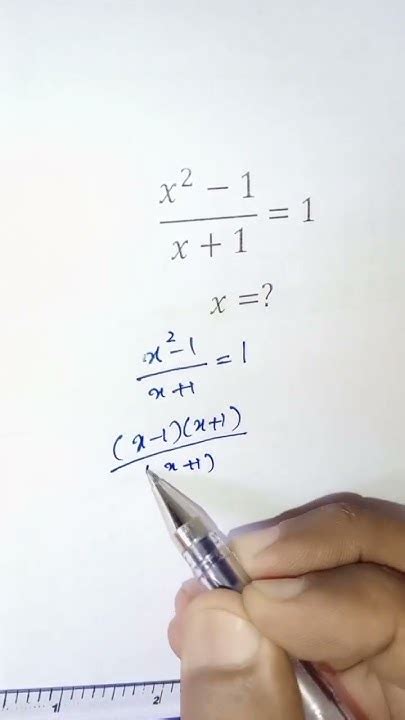 x² − 1
x + 1 = 1
x =?
x²-1
x+1 = 1
(x-1)(x+1)
(x+1)
1 2